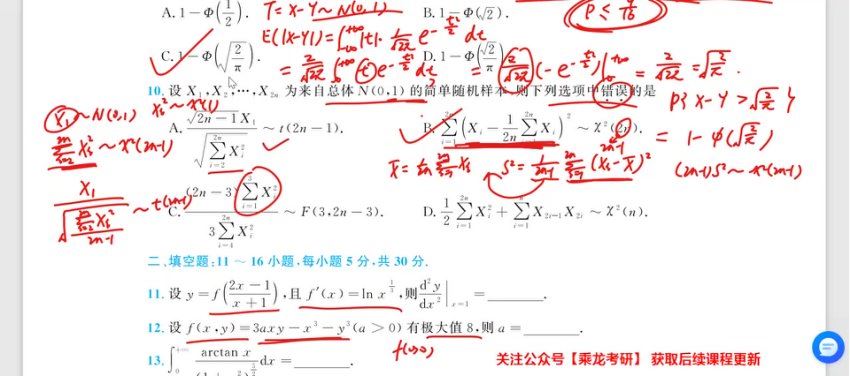 A. 1 − Φ(1/2).
B. 1 − Φ(√2).
T = X − Y ~ N(0,1)
P ≤ 9/16
E(|X−Y|) = ∫_{-∞}^{+∞} |t| · 1/√2π e^{-t²/2} dt
C. 1 − Φ(√(2/π)).
D. 1 − Φ(√2/π).
= 2/√2π ∫_0^{+∞} t e^{-t²/2} dt = 2/√2π (−e^{-t²/2})|_0^{+∞} = 2/√2π = √(2/π).
10. 设 X₁, X₂, ⋯, X₂ₙ 为来自总体 N(0,1) 的简单随机样本,则下列选项中错误的是
P{X−Y > √(2/π)}
= 1 − Φ(√(2/π))
X₁ ~ N(0,1) Xᵢ² ~ χ²(1)
∑_{i=2}^{2n} Xᵢ² ~ χ²(2n−1)
A. √(2n−1) X₁ / √(∑_{i=2}^{2n} Xᵢ²) ~ t(2n−1).
B. ∑_{i=1}^{2n} (Xᵢ − 1/2n ∑_{i=1}^{2n} Xᵢ)² ~ χ²(2n).
2n−1
X̄ = 1/2n ∑_{i=1}^{2n} Xᵢ S² = 1/(2n−1) ∑_{i=1}^{2n} (Xᵢ − X̄)²
(2n−1)S² ~ χ²(2n−1)
X₁ / √(∑_{i=2}^{2n} Xᵢ² / (2n−1)) ~ t(2n−1)
C. (2n−3) ∑_{i=1}^{3} Xᵢ² / 3 ∑_{i=4}^{2n} Xᵢ² ~ F(3, 2n−3).
D. 1/2 ∑_{i=1}^{2n} Xᵢ² + ∑_{i=1}^{n} X₂ᵢ₋₁ X₂ᵢ ~ χ²(n).
二、填空题:11 ~ 16 小题,每小题 5 分,共 30 分.
11. 设 y = f((2x−1)/(x+1)),且 f′(x) = ln x^{1/3},则 d²y/dx² |_{x=1} = ______.
12. 设 f(x,y) = 3axy − x³ − y³ (a > 0) 有极大值 8,则 a = ______.
13. ∫_0^{+∞} arctan x / (1+x²)^{3/2} dx = ______.
关注公众号【乘龙考研】 获取后续课程更新